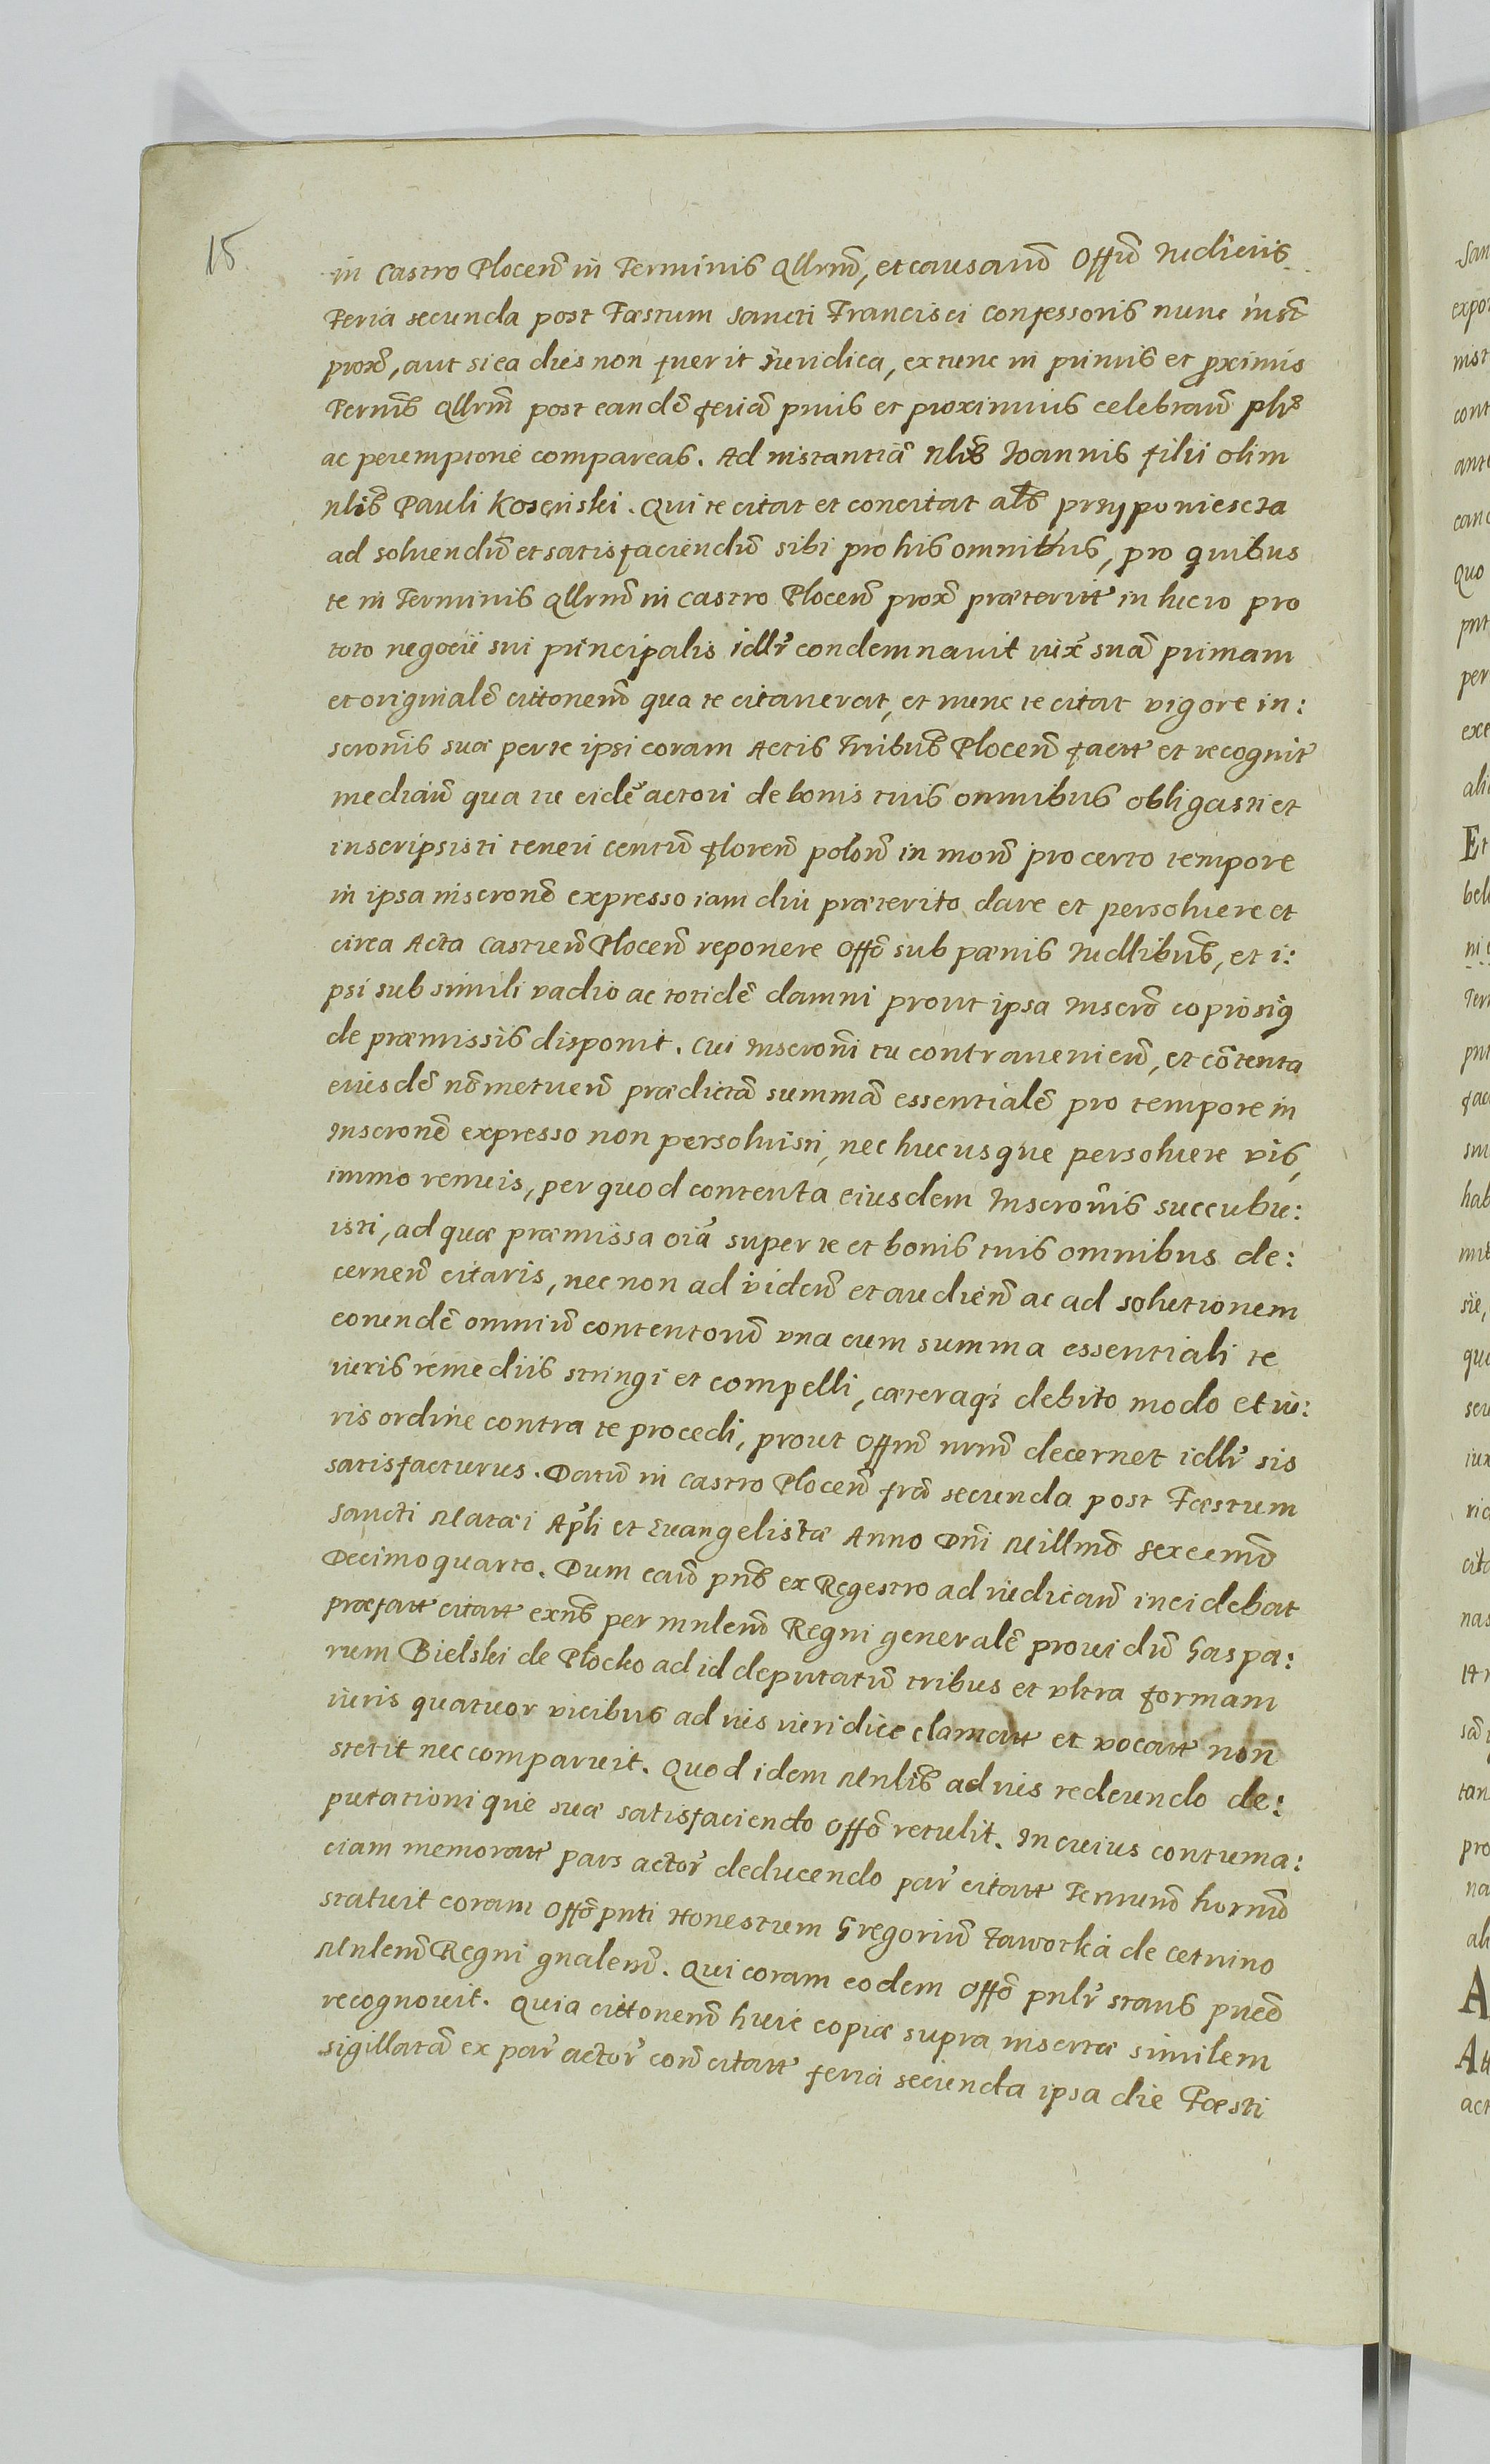 15
in Castro Plocen̄ in Terminis Qllrnm̄, et causarum̄ Offii Iudiciis
Feria secunda post Fæstum Sancti Francisci Confessoris nunc inst̄
prox̄, aut si ea dies non fuerit Iuridica, extunc in primis et p̄ximis
Termis̄ Qllrm̄ post eandē feriā pmis et proximius celebran̄ plr̄
ac peremptorie compareas. Ad instantiā Nlis̄ Ioannis filii olim
nlis̄ Pauli Kosęnski. Qui te citat et concitat als̄ przyponiescza
ad soluendū et satisfaciendū sibi pro his omnibus, pro quibus
te in Terminis Qllrnm̄ in Castro Plocen̄ prox̄ præteritt in lucro pro
toto negocii sui principalis idlr̄ condemnauit iux̄ suā primam
et originalē cittonem̄ qua te citauerat, et nunc te citat vigore in:
scronnis suæ per te ipsi coram Actis Tribus̄ Plocen̄ factt et recognit̄
median̄ qua tu eidē actori de bonis tuis omnibus obligasti et
inscripsisti teneri centū floren̄ polon̄ in mon̄ pro certo tempore
in ipsa inscronē expresso iam diu præterito dare et persoluere et
circa Acta Castren̄ Plocen̄ reponere Offō sub pænis Iudlibus̄, et i:
psi sub simili vadio ac totidē damni prout ipsa Inscrō copiosiq
de præmissis disponit. Cui Inscronī tu contrauenien̄, et cōtenta
eiusdē nō metuen̄ prædictā summā essentialē pro tempore in
Inscronē expresso non persoluisti, nec hucusque persoluere vis,
immo renuis, per quod contenta eiusdem Inscronīs succubu:
isti, ad quæ præmissa oiā super te et bonis tuis omnibus de:
cernen̄ citaris, nec non ad viden̄ et audien̄ ac ad solutionem
eorundē omniū contentorū vna cum summa essentiali te
iuris remediis stringi et compelli, cæteraqȝ debito modo et iu:
ris ordine contra te procedi, prout Offm̄ nrnm̄ decernet idlr̄ sis
satisfacturus. Datū in Castro Plocen̄ frā secunda post Fæstum
Sancti Matæi Apl̄i et Euangelistæ Anno Dn̄i Millmō Sexcenmō
Decimoquarto. Dum caūs pn̄s ex Regestro ad iudican̄ incidebat
præfatt citatt exn̄s per mnlem̄ Regni generalē prouidū Gaspa:
rum Bielski de Plocko ad id deputatū tribus et vltra formam
iuris quatuor vicibus ad ius iuridice clamatt et vocatt non
stetit nec comparuit. Quod idem Mnlis̄ ad ius redeundo de:
putationique suæ satisfaciendo Offō retulit. In cuius contuma:
ciam memoratt pars actor̄ deducendo par̄ citatt Terminū hornū
statuit coram Offō pnti Honestum Gregoriū Jaworka de Cetnino
Mnlem̄ Regni gnalem̄. Qui coram eodem Offō pnlr̄ stans pnecō
recognouit. Quia cittonem̄ huic copiæ supra insertæ similem
sigillatā ex par̄ actor̄ con̄ citatt feria secunda ipsa die Fæsti